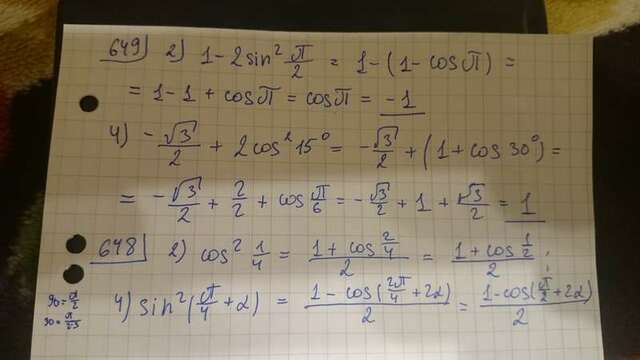 649) 2) 1 - 2sin² π/2 = 1 - (1 - cosπ) =
= 1 - 1 + cosπ = cosπ = -1
4) - √3/2 + 2cos² 15° = - √3/2 + (1 + cos 30°) =
= - √3/2 + 2/2 + cos π/6 = - √3/2 + 1 + √3/2 = 1
648) 2) cos² 1/4 = (1 + cos 2/4)/2 = (1 + cos 1/2)/2 ;
4) sin² (π/4 + α) = (1 - cos(2π/4 + 2α))/2 = (1 - cos(π/2 + 2α))/2
90 = π/2